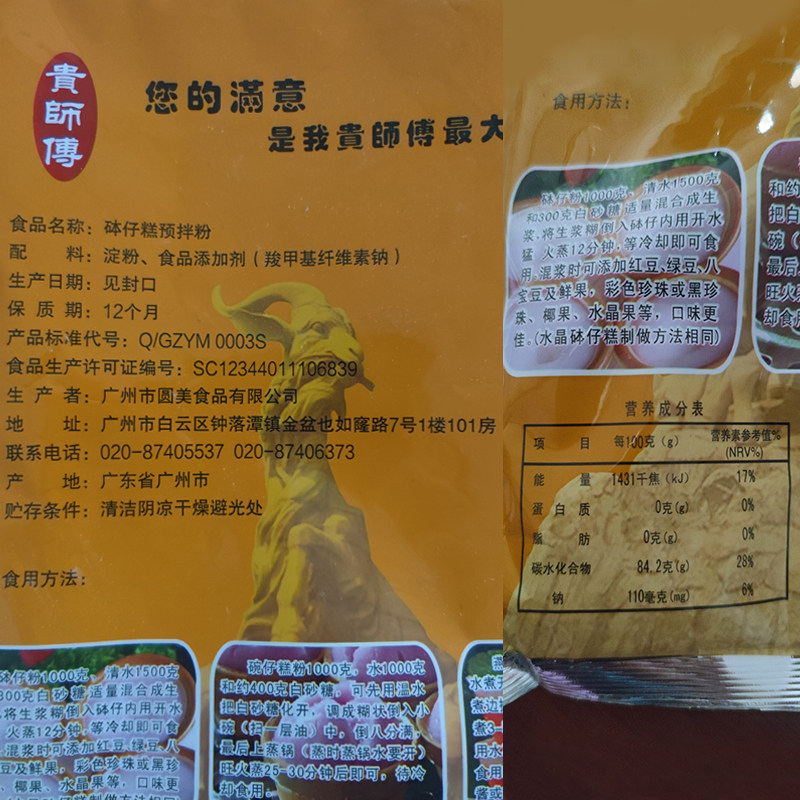 貴師傅
您的滿意
是我貴師傅最大
食品名称：砵仔糕预拌粉
配 料：淀粉、食品添加剂（羧甲基纤维素钠）
生产日期：见封口
保 质 期：12个月
产品标准代号：Q/GZYM 0003S
食品生产许可证编号：SC12344011106839
生 产 者：广州市圆美食品有限公司
地 址：广州市白云区钟落潭镇金盆也如窿路7号1楼101房
联系电话：020-87405537 020-87406373
产 地：广东省广州市
贮存条件：清洁阴凉干燥避光处
食用方法：
砵仔粉1000克，清水1500
300克白砂糖适量混合成生
将生浆糊倒入砵仔内用开水
火蒸12分钟，等冷却即可食
混浆时可添加红豆、绿豆、八
豆及鲜果，彩色珍珠或黑珍
、椰果、水晶果等，口味更
（水晶砵仔糕制做方法相同）
碗仔糕粉1000克，水1000克
和约400克白砂糖，可先用温水
把白砂糖化开，调成糊状倒入小
碗（扫一层油）中，倒八分满，
最后上蒸锅（蒸时蒸锅水要开）
旺火蒸25-30分钟后即可，待冷
却食用。
水煮开
煮边
煮3-
用水
食用
酱或
食用方法：
砵仔粉1000克，清水1500克
和300克白砂糖适量混合成生
浆，将生浆糊倒入砵仔内用开水
猛 火蒸12分钟，等冷却即可食
用，混浆时可添加红豆、绿豆、八
宝豆及鲜果，彩色珍珠或黑珍
珠、椰果、水晶果等，口味更
佳。（水晶砵仔糕制做方法相同）
和约
把白
碗（
最后
旺火
却食
营养成分表
项 目 每100克（g） 营养素参考值%(NRV%)
能 量 1431千焦（kJ） 17%
蛋 白 质 0克（g） 0%
脂 肪 0克（g） 0%
碳水化合物 84.2克（g） 28%
钠 110毫克（mg） 6%